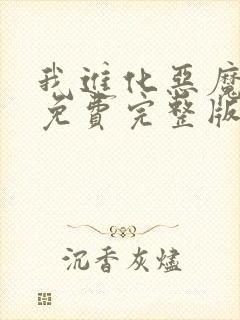 我進化惡魔
免費完整版
沉香灰燼